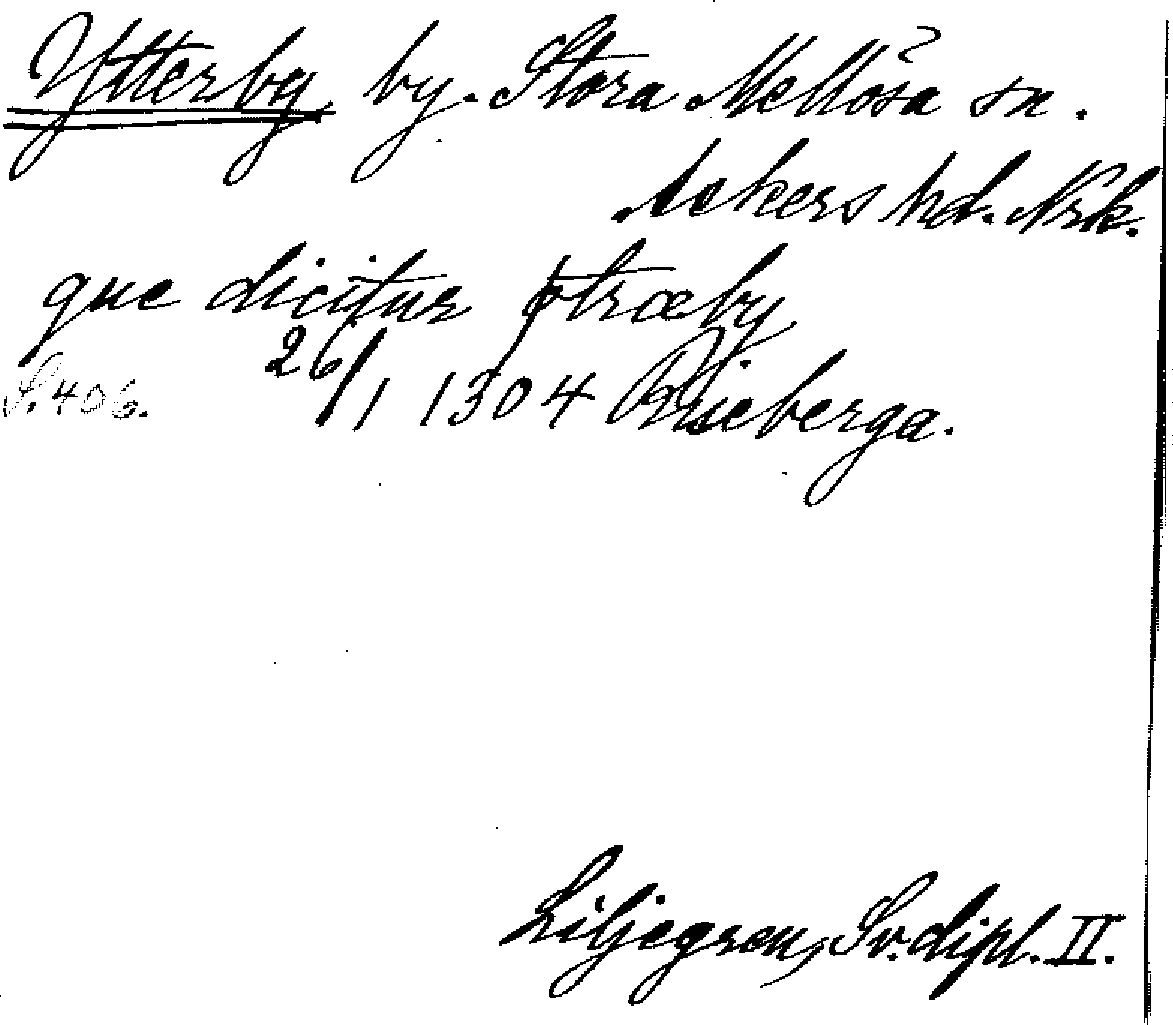 Ytterby by. Stora Mellösa sn.
Askers hd. Nrk.
que dicitur øtræby
S. 406. 26/1 1304 Riseberga.
Liljegren, Sv. dipl. II.